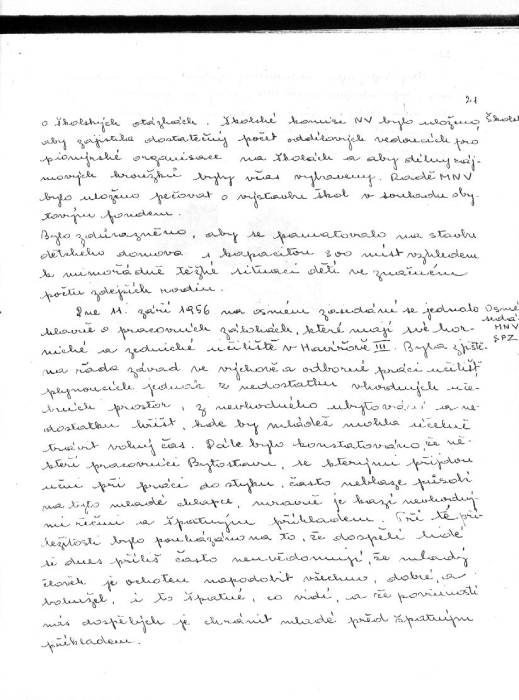 21
o školských otázkách. Školské komisi NV bylo uloženo,
aby zajistila dostatečný počet oddílových vedoucích pro
pionýrské organisace na školách a aby dílny záj-
mových kroužků byly včas vybaveny. Radě MNV
bylo uloženo pečovat o výstavbu škol v souladu oby-
tovým fondem.
Bylo zdůrazněno, aby se pamatovalo na stavbu
dětského domova s kapacitou 300 míst vzhledem
k mimořádně těžké situaci dětí ve značném
počtu zdejších rodin.
Dne 11. září 1956 na osmém zasedání se jednalo
hlavně o pracovních zálohách, které mají své hor-
nické a zednické učiliště v Havířově III. Byla zjiště-
na řada závad ve výchově a odborné práci učilišť
plynoucích jednak z nedostatku vhodných uče-
bních prostor, z nevhodného ubytování a ne-
dostatku hřišť, kde by mládež mohla účelně
trávit volný čas. Dále bylo konstatováno, že ně-
kteří pracovníci Bytostavu, se kterými přijdou
učni při práci do styku, často neblaze působí
na tyto mladé chlapce, mravně je kazí nevhodný-
mi řečmi a špatným příkladem. Při té pří-
ležitosti bylo poukázáno na to, že dospělí lidé
si dnes příliš často neuvědomují, že mladý
člověk je ochoten napodobit všechno, dobré, a
bohužel, i to špatné, co vidí, a že povinností
nás dospělých je chránit mladé před špatným
příkladem.
Škols
Osmé
MNV
ŠPZ